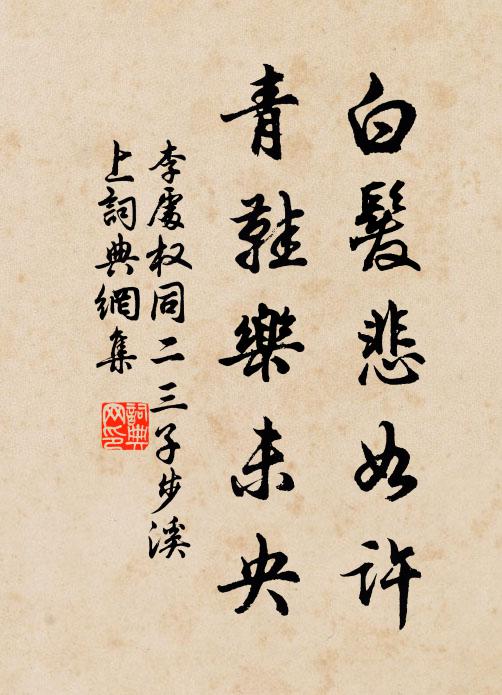 白髮悲如許
青鞋樂未央
李處权同二三子步溪
上詞典網集
詞典网印